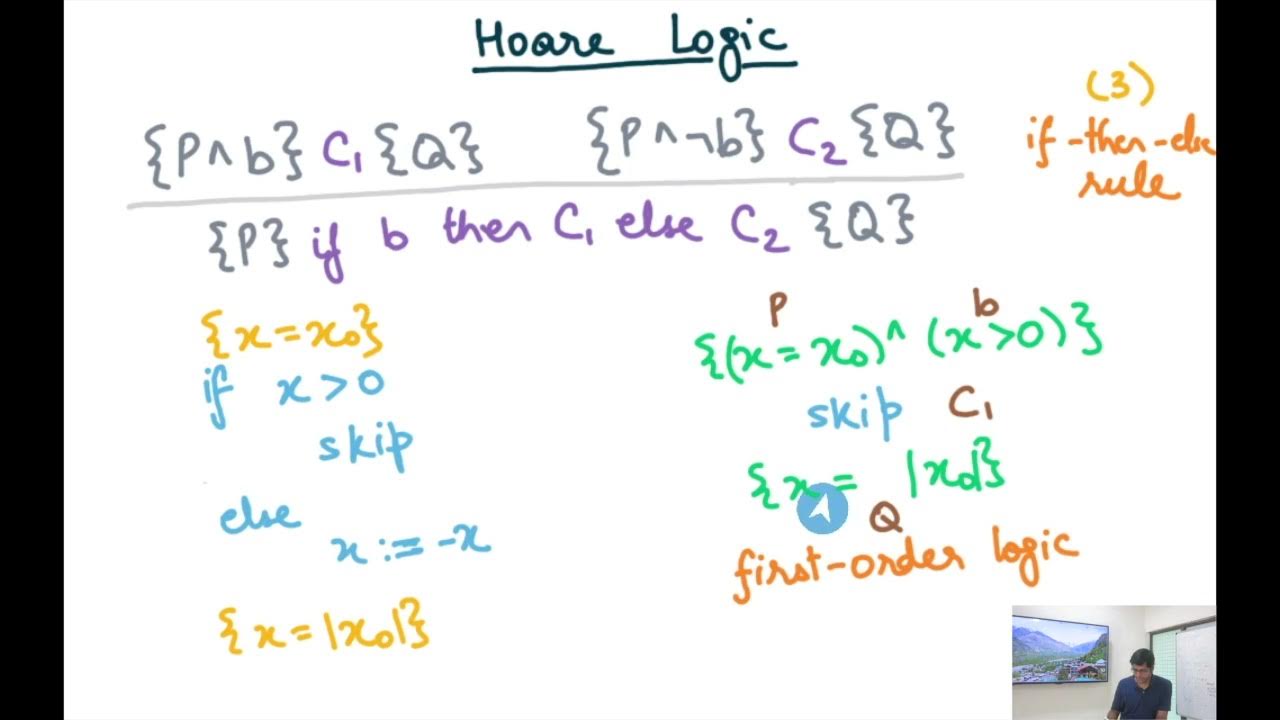 Hoare Logic
(3)
if-then-else
rule
{P ∧ b} C₁ {Q} {P ∧ ¬b} C₂ {Q}
{P} if b then C₁ else C₂ {Q}
{x = x₀}
if x > 0
skip
else
x := -x
{x = |x₀|}
P b
{(x = x₀) ∧ (x > 0)}
skip C₁
{x = |x₀|}
Q
first-order logic